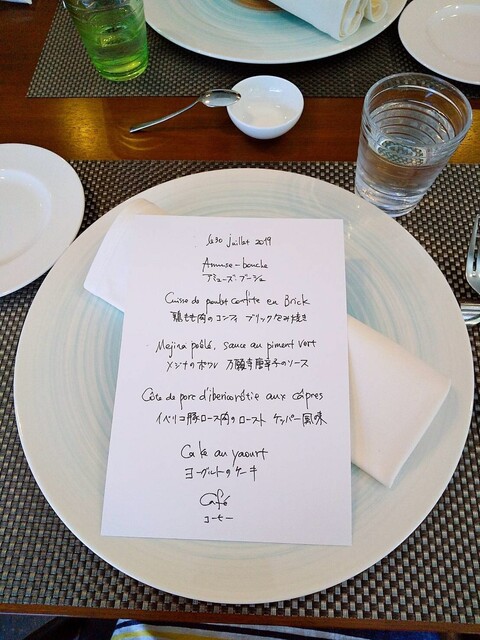 le 30 juillet 2019
Amuse-bouche
アミューズ・ブーシュ
Cuisse de poulet confite en Brick
鶏もも肉のコンフィ ブリック包み焼き
Mejina poêlé, sauce au piment vert
メジナのポワレ 万願寺唐辛子のソース
Côte de porc d'iberico rôtie aux câpres
イベリコ豚ロース肉のロースト ケッパー風味
Cake au yaourt
ヨーグルトのケーキ
Café
コーヒー